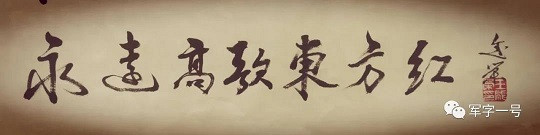 永遠高歌東方红
军字一号